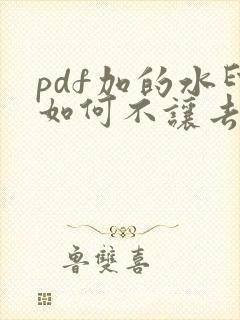 pdf加的水印
如何不讓去
魯雙喜